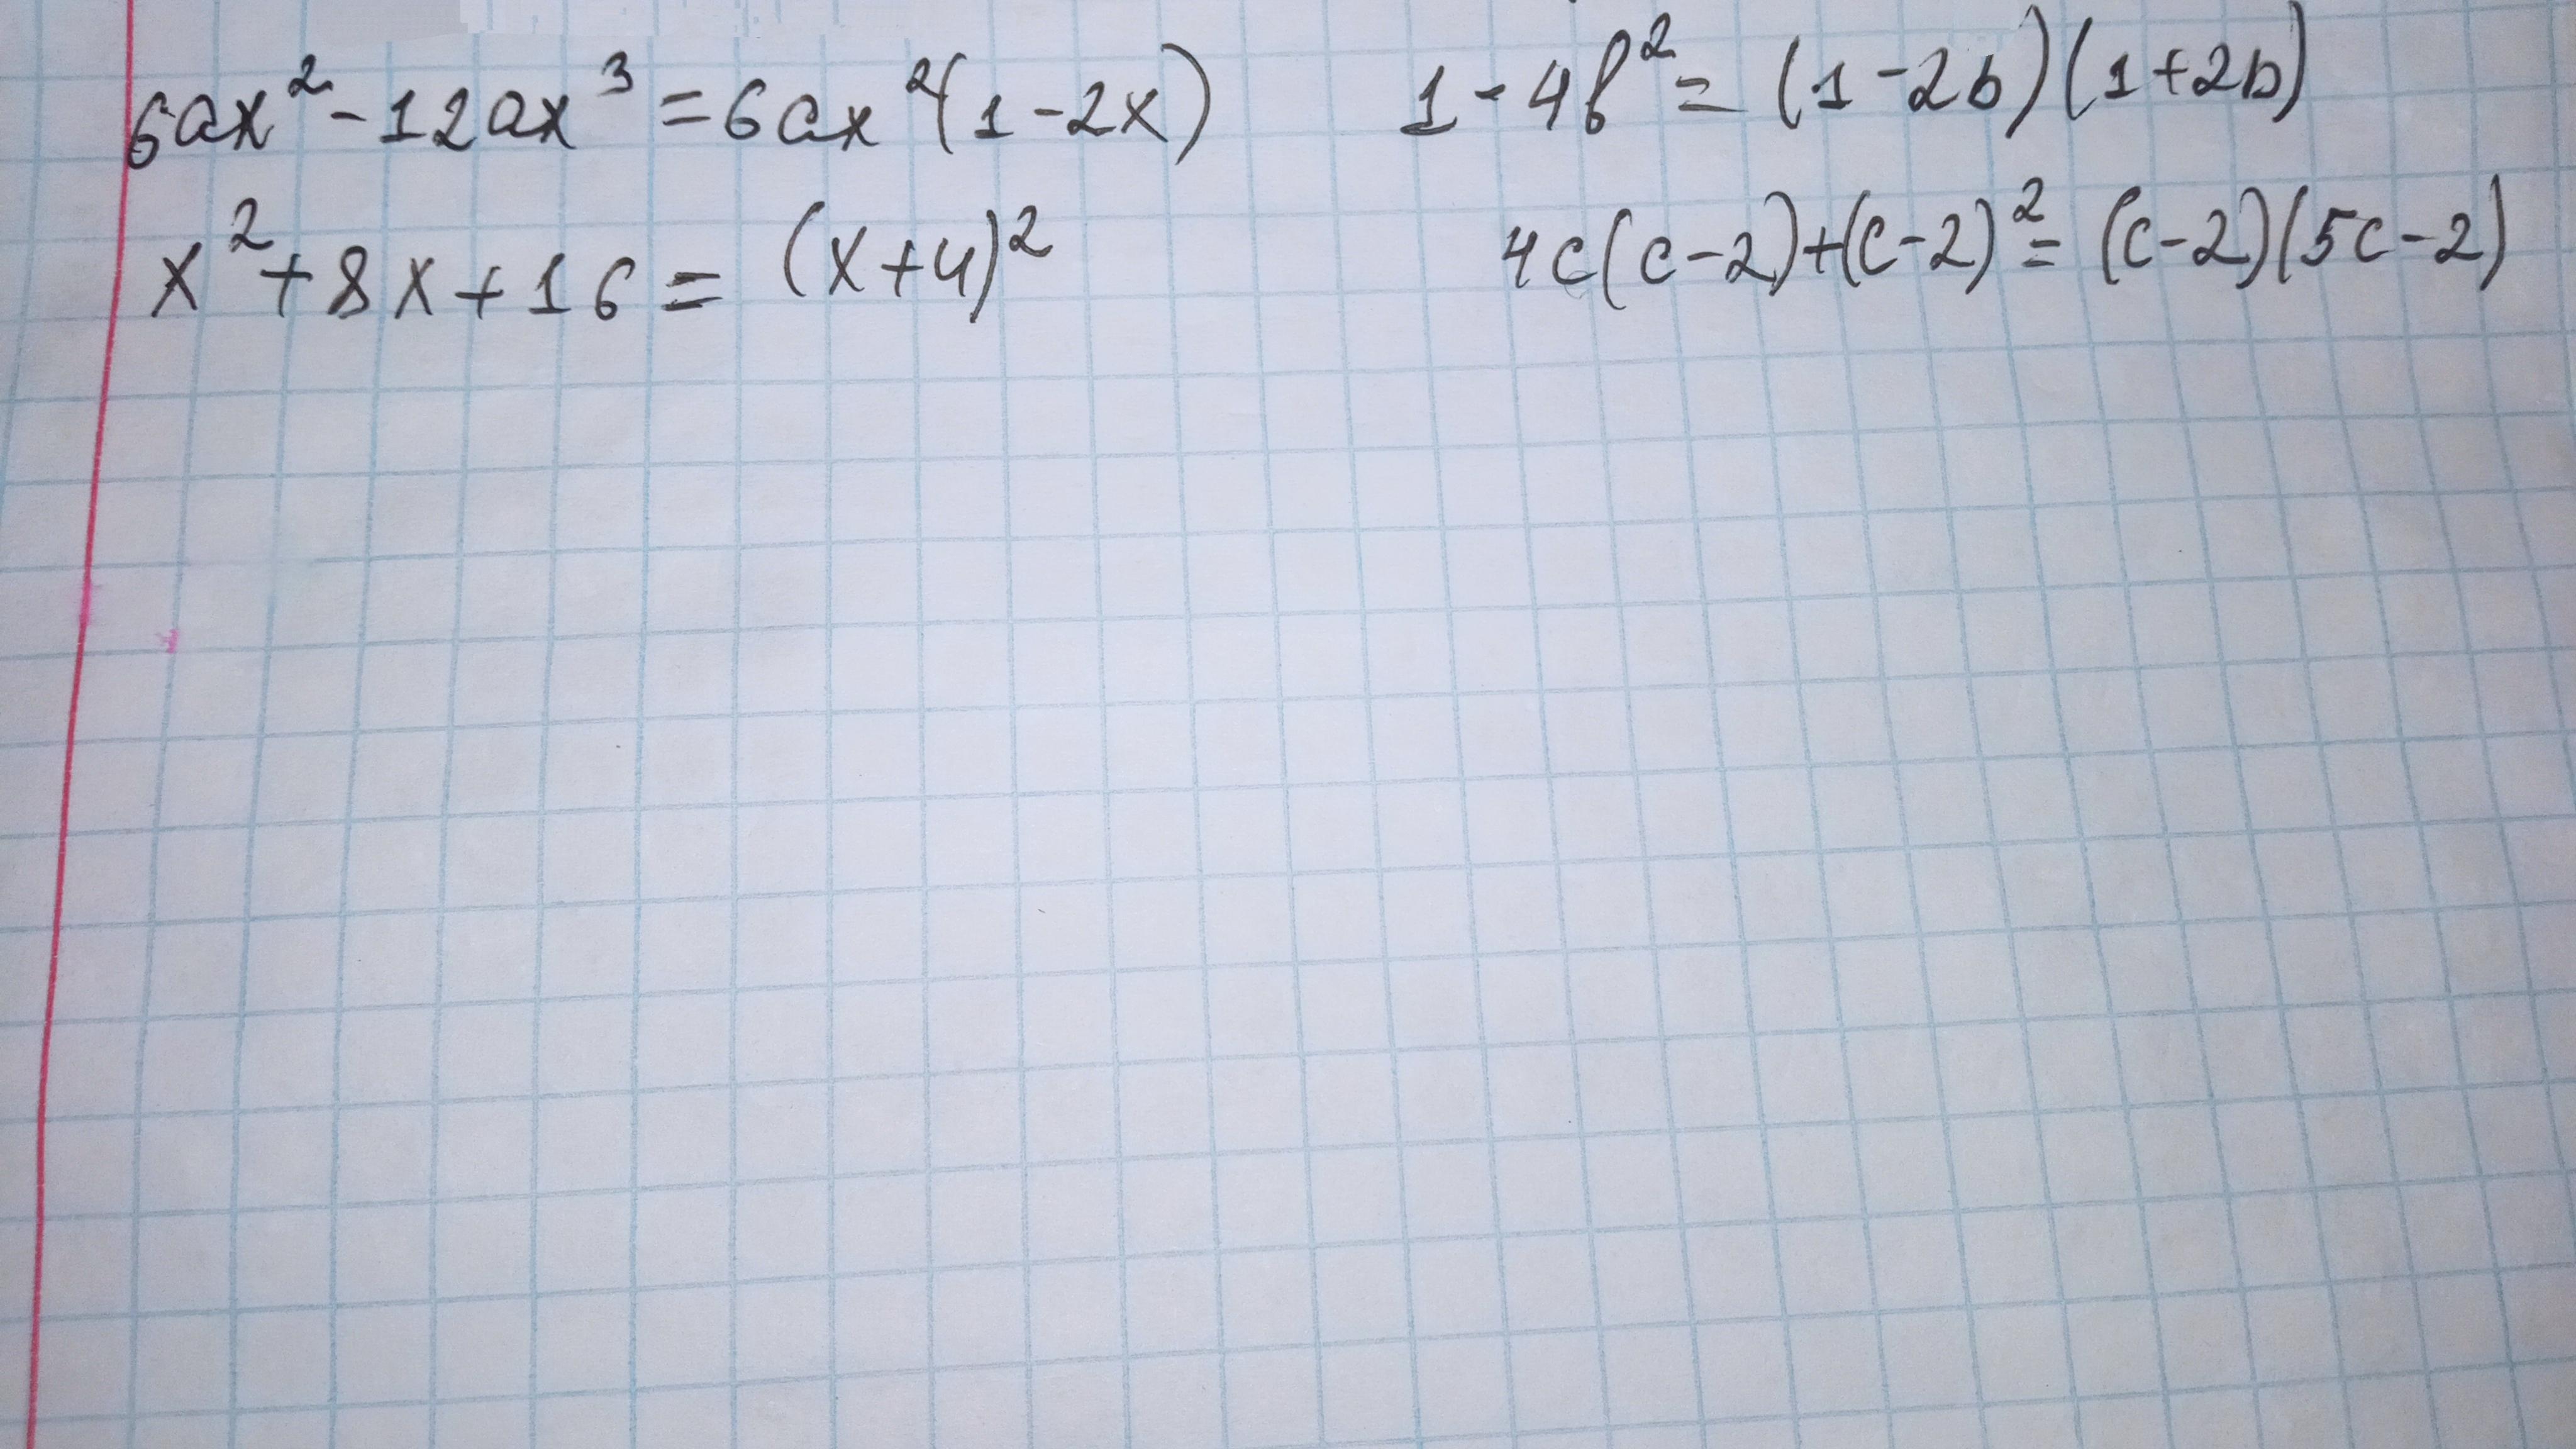 6ax² - 12ax³ = 6ax²(1 - 2x)
1 - 4b² = (1 - 2b)(1 + 2b)
x² + 8x + 16 = (x + 4)²
4c(c - 2) + (c - 2)² = (c - 2)(5c - 2)